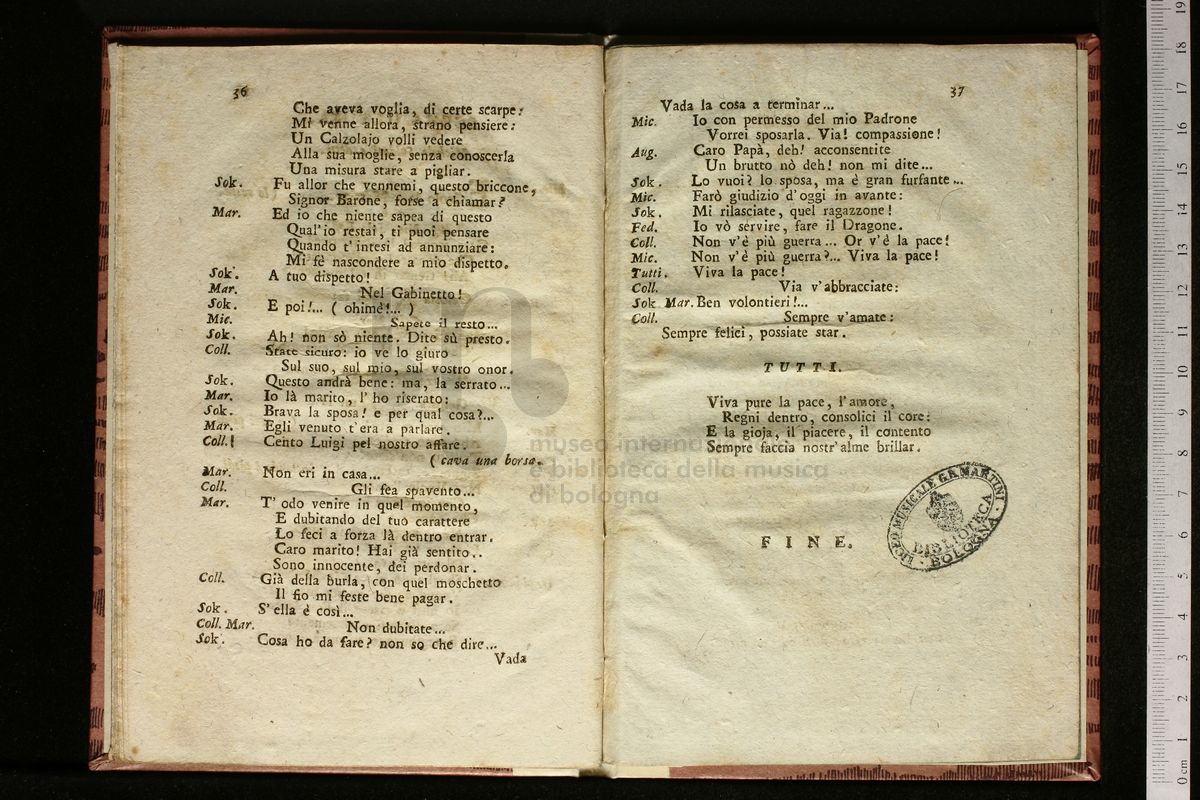 36
Che aveva voglia, di certe scarpe:
Mi venne allora, strano pensiere:
Un Calzolajo volli vedere
Alla sua moglie, senza conoscerla
Una misura stare a pigliar.
Sok. Fu allor che vennemi, questo briccone,
Signor Barone, forse a chiamar?
Mar. Ed io che niente sapea di questo
Qual'io restai, ti puoi pensare
Quando t'intesi ad annunziare:
Mi fè nascondere a mio dispetto.
Sok. A tuo dispetto!
Mar. Nel Gabinetto!
Sok. E poi!... ( ohimè!... )
Mic. Sapete il resto...
Sok. Ah! non sò niente. Dite sù presto.
Coll. State sicuro: io ve lo giuro
Sul suo, sul mio, sul vostro onor.
Sok. Questo andrà bene: ma, la serrato...
Mar. Io là marito, l'ho riserato:
Sok. Brava la sposa! e per qual cosa?...
Mar. Egli venuto t'era a parlare.
Coll. Cento Luigi pel nostro affare.
( cava una borsa.
Mar. Non eri in casa...
Coll. Gli fea spavento...
Mar. T'odo venire in quel momento,
E dubitando del tuo carattere
Lo feci a forza là dentro entrar.
Caro marito! Hai già sentito..
Sono innocente, dei perdonar.
Coll. Già della burla, con quel moschetto
Il fio mi feste bene pagar.
Sok. S'ella è così...
Coll. Mar. Non dubitate...
Sok. Cosa ho da fare? non so che dire...
Vada
37
Vada la cosa a terminar...
Mic. Io con permesso del mio Padrone
Vorrei sposarla. Via! compassione!
Aug. Caro Papà, deh! acconsentite
Un brutto nò deh! non mi dite...
Sok. Lo vuoi? lo sposa, ma è gran furfante...
Mic. Farò giudizio d'oggi in avante:
Sok. Mi rilasciate, quel ragazzone!
Fed. Io vò servire, fare il Dragone.
Coll. Non v'è più guerra... Or v'è la pace!
Mic. Non v'è più guerra?... Viva la pace!
Tutti. Viva la pace!
Coll. Via v'abbracciate:
Sok Mar. Ben volontieri!...
Coll. Sempre v'amate:
Sempre felici, possiate star.
TUTTI.
Viva pure la pace, l'amore,
Regni dentro, consolici il core:
E la gioja, il piacere, il contento
Sempre faccia nostr'alme brillar.
FINE.
LICEO MUSICALE G.B. MARTINI
BIBLIOTECA
BOLOGNA
museo interna
e biblioteca della musica
di bologna
0 cm 1 2 3 4 5 6 7 8 9 10 11 12 13 14 15 16 17 18 19